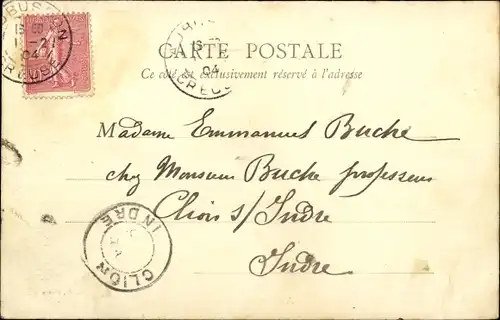 CARTE POSTALE
Ce côté est exclusivement réservé à l'adresse
Madame Emmanuel Buche
chez Monsieur Buche professeur
Clion s/ Indre
Indre
CLION
INDRE
04
CREUSE
04
CREUSE